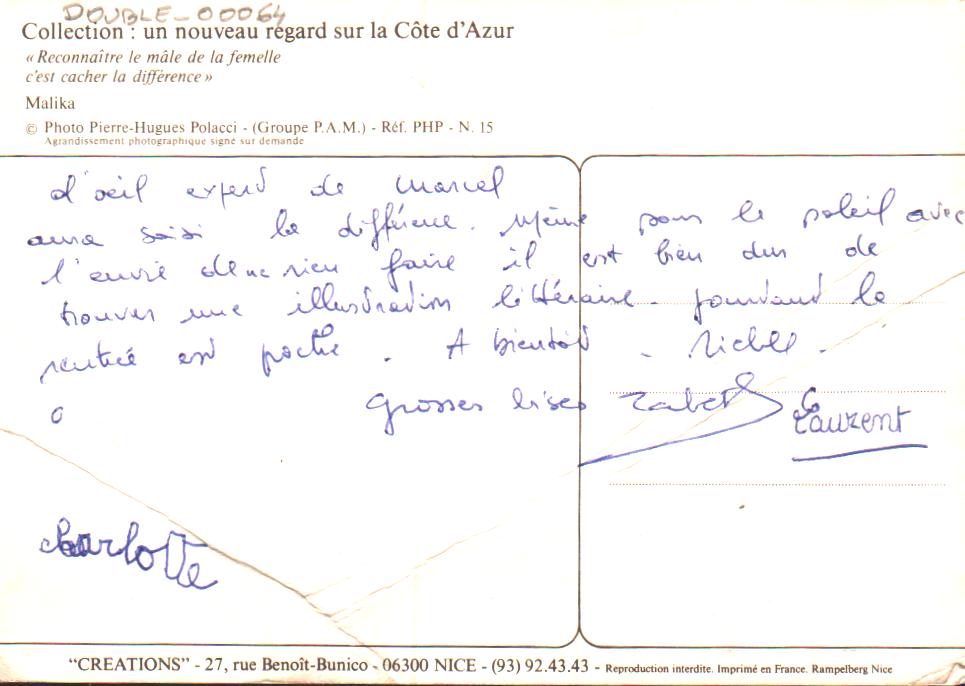 DOUBLE_00064
Collection : un nouveau regard sur la Côte d'Azur
« Reconnaître le mâle de la femelle
c'est cacher la différence »
Malika
© Photo Pierre-Hugues Polacci - (Groupe P.A.M.) - Réf. PHP - N. 15
Agrandissement photographique signé sur demande
L'oeil expert de Marcel
aura saisi la différence. Même pour le soleil avec
l'envie de ne rien faire il est bien dur de
trouver une illustration littéraire. Pourtant la
rentrée est proche. A bientôt.
Grosses bises
Laurent
charlotte
"CREATIONS" - 27, rue Benoît-Bunico - 06300 NICE - (93) 92.43.43 - Reproduction interdite. Imprimé en France. Rampelberg Nice